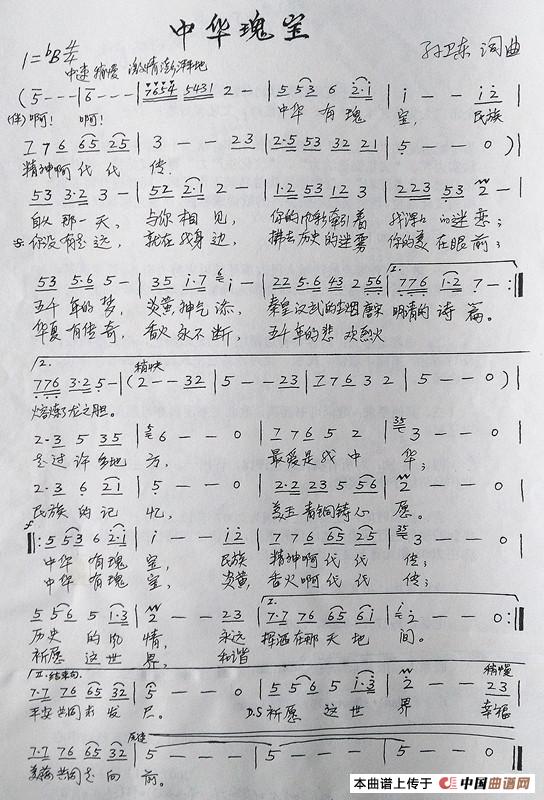 中华瑰宝
1=♭B 4/4 中速稍慢 激情澎湃地 孙卫东 词曲
(5 - - - | 6 - - - | 7654 5431 2 - | 5 53 6 2·1 | i - - i2 |
(伴)啊! 啊! 中华 有 瑰 宝, 民族
7 7 6 65 25 | 3 - - 23 | 2·5 53 32 21 | 5 - - 0 ) |
精神啊 代 代 传.
53 3·2 3 - | 52 2·1 2 - | 1·2 53 12 3 | 223 53 2 - |
自从 那一 天, 与你 相 见, 你的 牵引着 我 的迷恋;
你没有走 远, 就在我身 边, 拂去历史的迷雾 你的美 在眼 前;
53 5·6 5 - | 35 i·7 6 i - | 22 5·6 43 2 56 | 1. 776 1·2 7 - :|
五千 年的 梦, 炎黄 神气 添, 秦皇汉武的 唐宋 明清的 诗 篇。
华夏 有传 奇, 香火 永不 断, 五千年的悲 欢烈火
2. 稍快
776 3·2 5 - | (2 - - 32 | 5 - - 23 | 7 7 6 3 2 | 5 - - 0 ) |
熔炼了龙之胆。
2·3 5 35 | 5 6 - - 0 | 7 7 6 5 2 | 35 3 - - 0 |
走过 许多地 方, 最爱是我 中 华;
2·3 6 21 | 5 - - 0 | 2·2 23 5 56 | 2 - - 0 |
民族 的 记 忆, 美玉 青铜铸心 愿。
|: 5 53 6 2·1 | i - - i2 | 7 76 65 25 | 35 3 - - 0 |
中华 有 瑰 宝, 民族 精神啊 代 代 传;
中华 有 瑰 宝, 炎黄 香火啊 代 代 传;
5 56 5 1·3 | 2 - - 23 | 1. 7·7 76 65 6i | i 2 - - 0 :|
历史 的 风 情, 永远 挥洒在那 天 地 间。
祈愿 这 世 界, 和谐
II.结束句. 稍慢
7·7 76 65 32 | 5 - - 0 | 5 56 5 i·3 | 2 - - 23 |
平安 共同求 发 展。 D.S 祈愿 这 世 界 幸福
7·7 76 65 32 | 5 - - - | 5 - - - | 5 - - 0 ||
美满共同走向 前。
本曲谱上传于 中国曲谱网